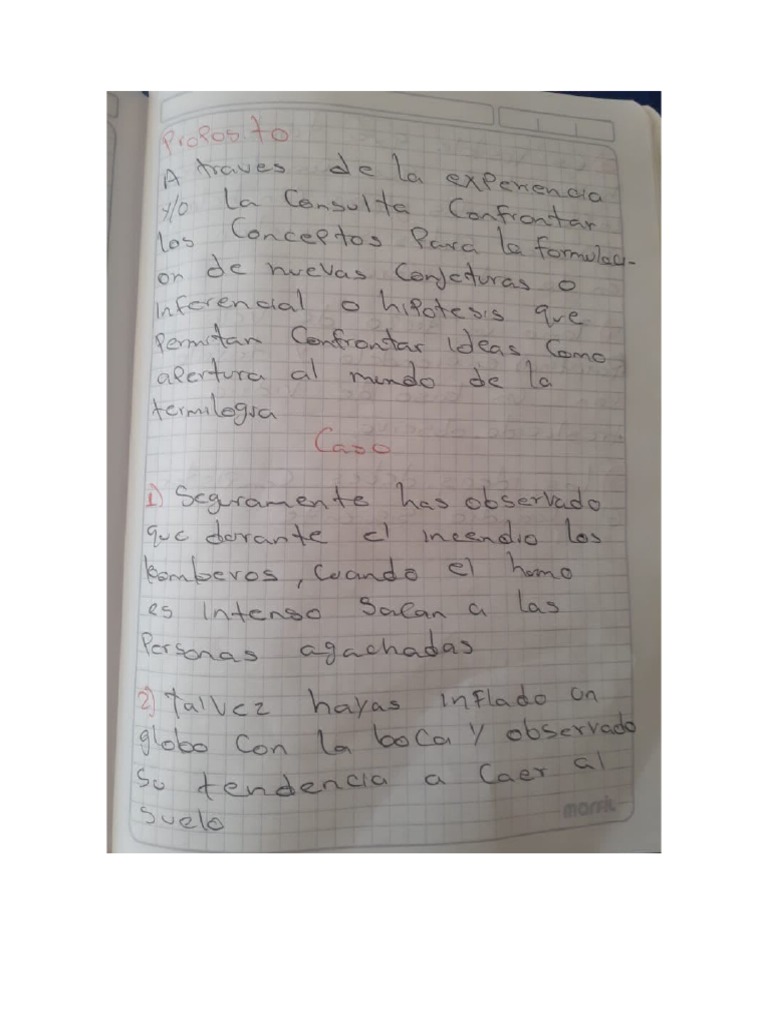 Proposito
A traves de la experiencia
y/o la Consulta Confrontar
los Conceptos Para la formulaci-
on de nuevas Conjeturas o
inferencial o hipotesis que
Permitan Confrontar ideas Como
apertura al mundo de la
termilogia
Caso
1) Seguramente has observado
que durante el incendio los
bomberos, Cuando el homo
es intenso Sacan a las
Personas agachadas
2) talvez hayas inflado un
globo Con la boca y observado
Su tendencia a Caer al
Suelo